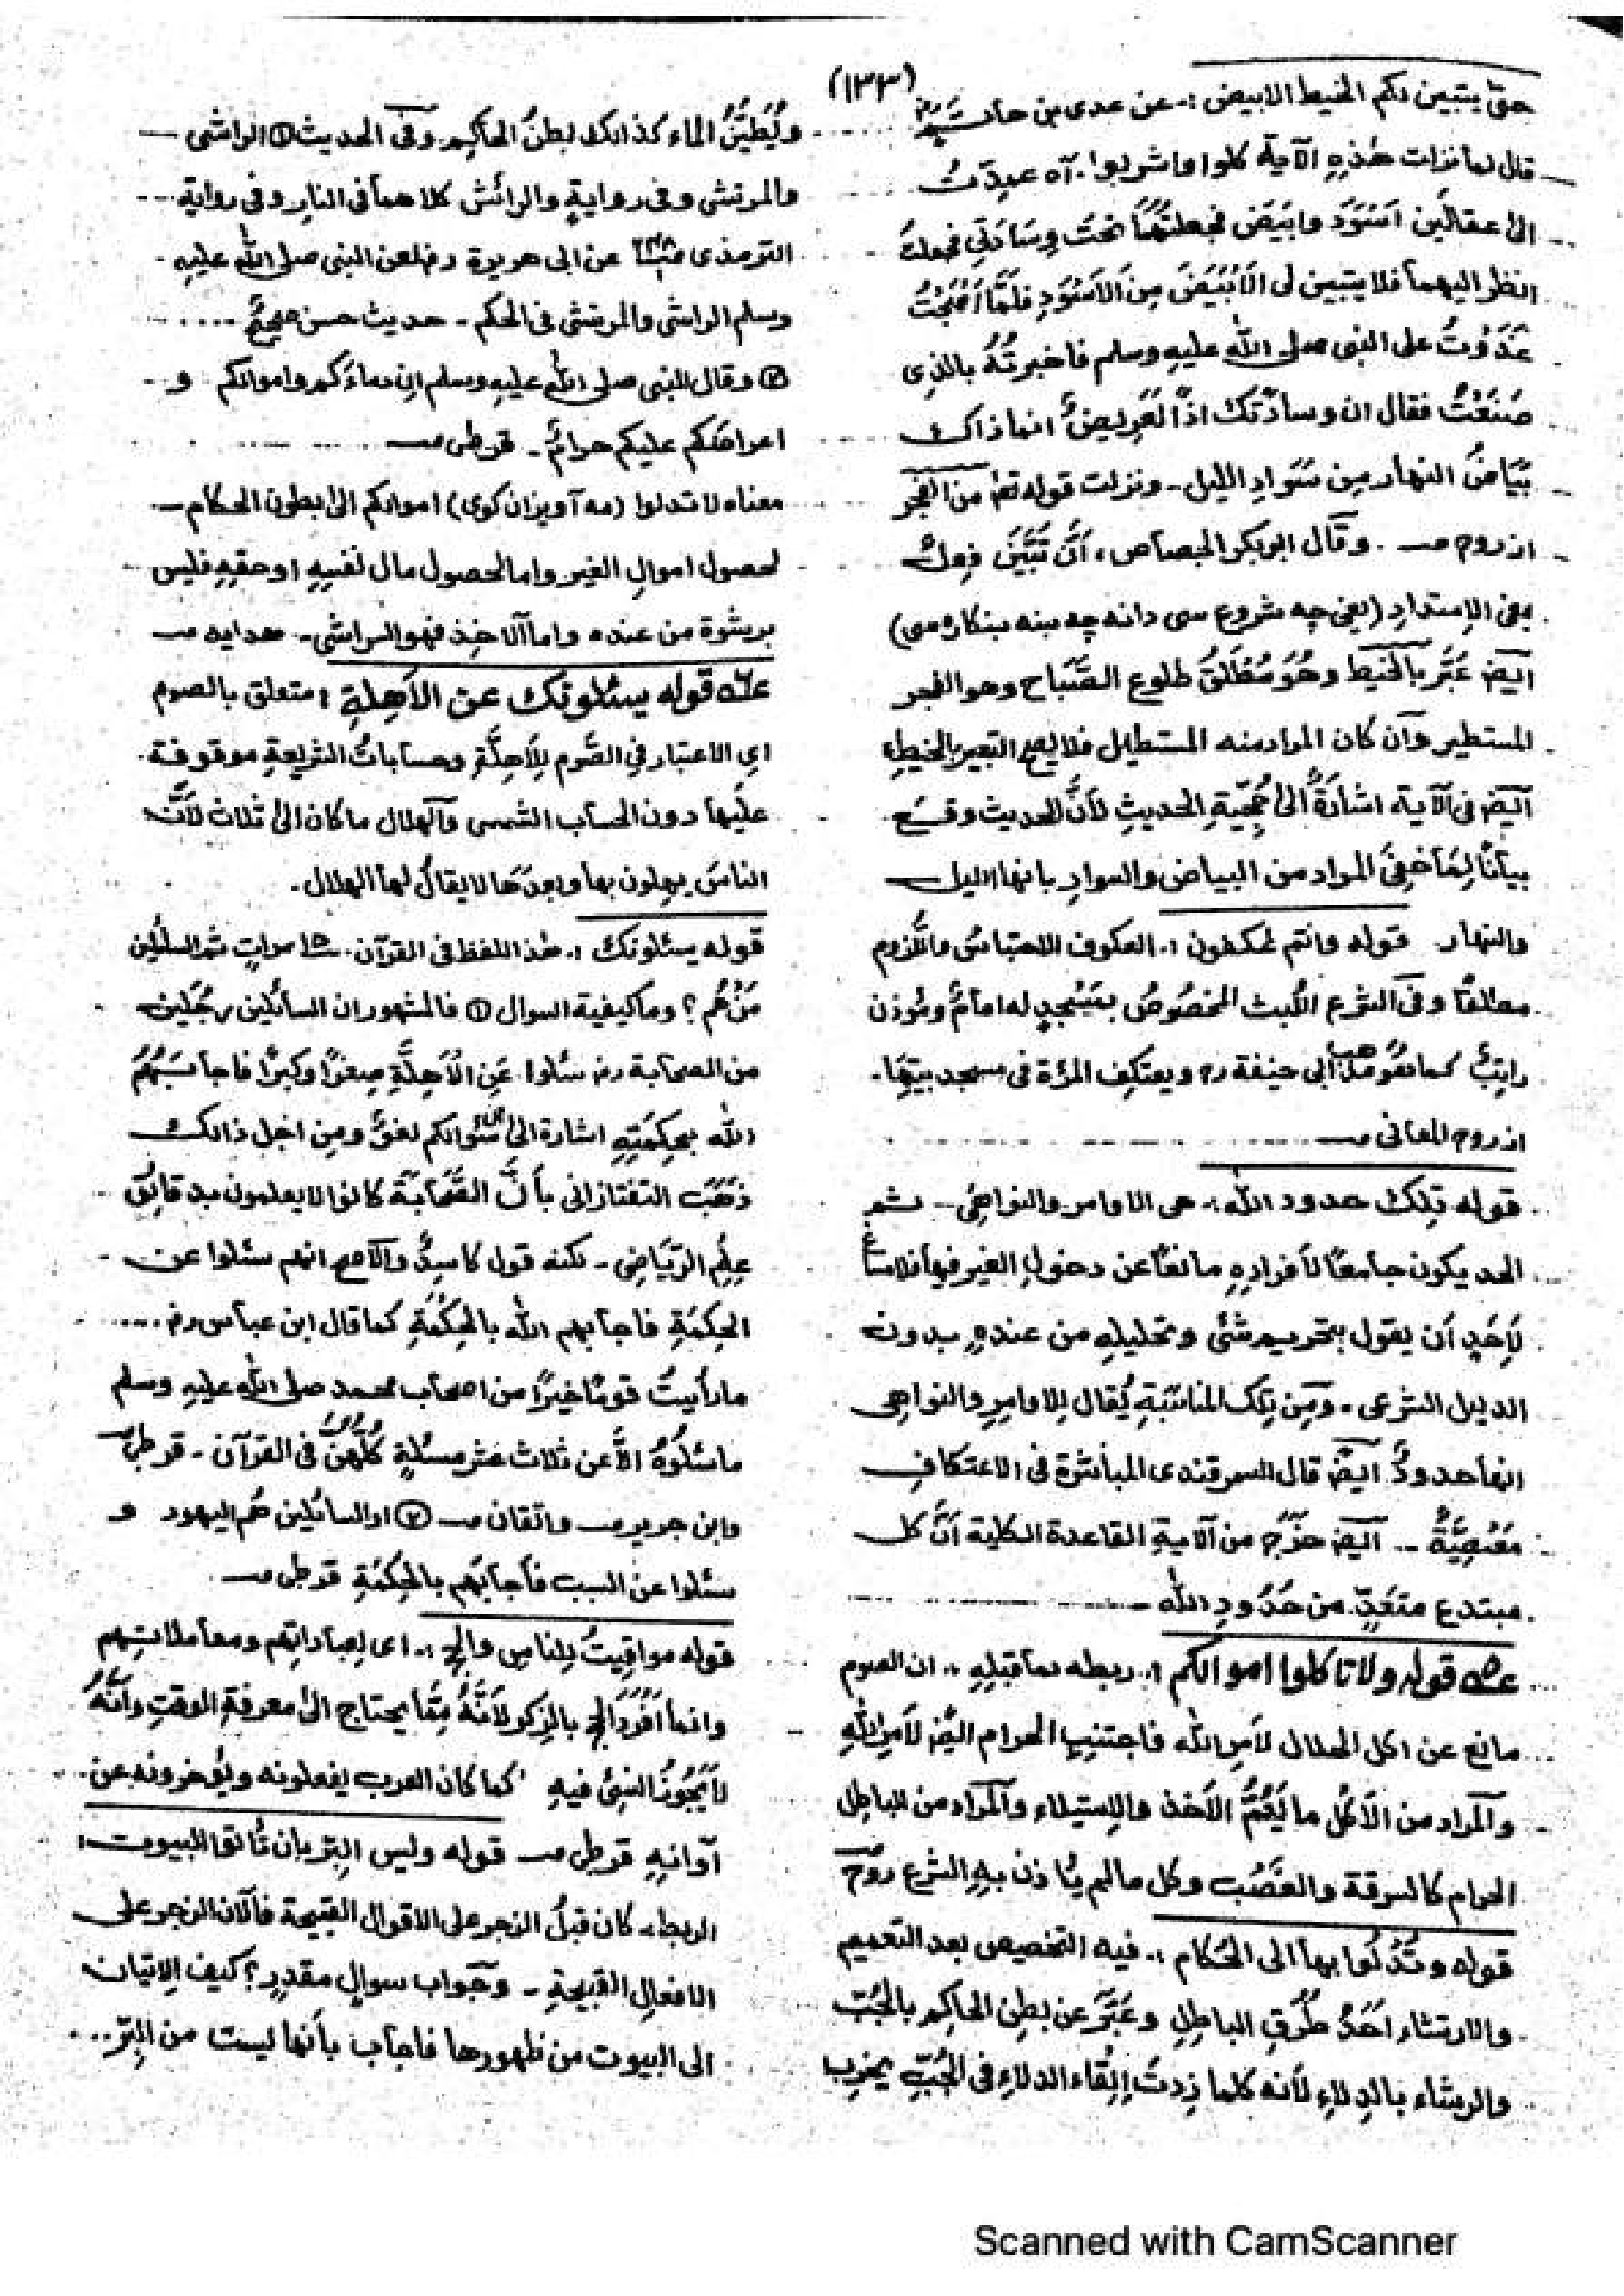 (١٣٣)
حتى يتبين لكم الخيط الابيض :. عن عدى بن حاتم
قال لما نزلت هٰذه الآية كلوا واشربوا . آه عمدت
الىٰ عقالين اسود وابيض فجعلتهما تحت وسادتى فجعلت
انظر اليهما فلا يتبين لى الابيض من الاسود فلما اصبحت
غدوت على النبى صلى الله عليه وسلم فاخبرته بالذى
صنعت فقال ان وسادتك اذًا لعريض انما ذاك
بياض النهار من سواد الليل ـ ونزلت قوله تعٰ من الفجر
از روح صـ . وقال ابوبكر الجصاص ، ان تبين فعل
بمعنى الامتداد (يعنى چه شروع سى دانه چه ښه ښكاره سى)
ايضًا عبر بالخيط وهو مطلق طلوع الصباح وهو الفجر
المستطير وان كان المراد منه المستطيل فلا يصح التعبير بالخيط
ايضًا فى الآية اشارة الى حجية الحديث لأن الحديث وقع
بيانًا لما خفى المراد من البياض والسواد بانها الليل
والنهار قوله وانتم عٰكفون :. العكوف الاحتباس واللزوم
مطلقًا وفى الشرع اللبث المخصوص بمسجد له امام ومؤذن
راتب كما هو مذهب ابى حنيفة رح ويعتكف المرؤة فى مسجد بيتها .
از روح المعانى صـ
قوله تلك حدود الله :. هى الاوامر والنواهى ـ ثم
الحد يكون جامعًا لافراده مانعًا عن دخول الغير فيها فلا مساغ
لأحد أن يقول بتحريم شئى وتحليله من عنده بدون
الدليل الشرعى . ومن تلك المناسبة يقال للاوامر والنواهى
انها حدود ايضًا قال السمرقندى المباشرة فى الاعتكاف
معصية ـ ايضًا خرج من الآية القاعدة الكلية ان كل
مبتدع متعد من حدود الله ـ
قوله ولا تاكلوا اموالكم :. ربطه بما قبله :. ان الصوم
مانع عن اكل الحلال لأمر الله فاجتنبوا الحرام ايضًا لأمر الله
والمراد من الاكل ما يعم الاخذ والاستيلاء والمراد من الباطل
الحرام كالسرقة والغصب وكل مالم يأذن به الشرع روح
قوله وتدلوا بها الى الحكام :. فيه التخصيص بعد التعميم
والارتشاء احد طرق الباطل وعبر عن بطن الحاكم بالجب
والرشاء بالدلاء لأنه كلما زدت إلقاء الدلاء فى الجب يخرب
ويطين الماء كذالك بطن الحاكم وفى الحديث ① الراشى
والمرتشى وفى رواية والرائش كلاهما فى النار وفى رواية
الترمذى عن ابى هريرة رض لعن النبى صلى الله عليه
وسلم الراشى والمرتشى فى الحكم ـ حديث حسن صحيح
② وقال النبى صلى الله عليه وسلم ان دماءكم واموالكم و
اعراضكم عليكم حرام ـ قرطبى صـ
معناه لا تدلوا (مه آويزان كوى) اموالكم الىٰ بطون الحكام
لحصول اموال الغير واما لحصول مال نفسه او حقه فليس
برشوة من عنده واما الآخذ فهو الراشى ـ هدايه صـ
قوله يسئلونك عن الأهلة : متعلق بالصوم
اى الاعتبار فى الصوم للأهلة وحسابات الشريعة موقوفة
عليها دون الحساب الشمسى والهلال ما كان الىٰ ثلاث لأن
الناس يهلون بها وبعدها لا يقال لها الهلال .
قوله يسئلونك :. هٰذا اللفظ فى القرآن ١٥ مرات ثم السائلين
من هم ؟ وما كيفية السوال ① فالمشهور ان السائلين رجلين
من الصحابة رض سئلوا عن الأهلة صغرًا وكبرًا فاجابهم
الله بحكمته اشارة الىٰ ان سئوالكم لغو ومن اجل ذالك
ذهب التفتازانى بأن الصحابة كانوا لا يعلمون بدقائق
علم الرياضى ـ لكنه قول كاسد والاصح انهم سئلوا عن
الحكمة فاجابهم الله بالحكمة كما قال ابن عباس رض
مارأيت قومًا خيرًا من اصحاب محمد صلى الله عليه وسلم
ماسئلوه الا عن ثلاث عشر مسئلة كلهن فى القرآن ـ قرطبى
وابن جرير صـ واتقان صـ ② او السائلين هم اليهود و
سئلوا عن السبب فأجابهم بالحكمة قرطبى صـ
قوله مواقيت للناس والحج :. اى لعباداتهم ومعاملاتهم
وانما افرد الحج بالذكر لأنه مما يحتاج الىٰ معرفة الوقت وأنه
لا يجوز النسئ فيه كما كان العرب يفعلونه ويؤخرونه عن
أوانه قرطبى صـ قوله وليس البر بان تأتوا البيوت :
الربط :. كان قبل الزجر على الاقوال القبيحة فالآن الزجر على
الافعال القبيحة ـ وجواب سوال مقدر ؟ كيف الاتيان
الى البيوت من ظهورها فاجاب بأنها ليست من البر
Scanned with CamScanner